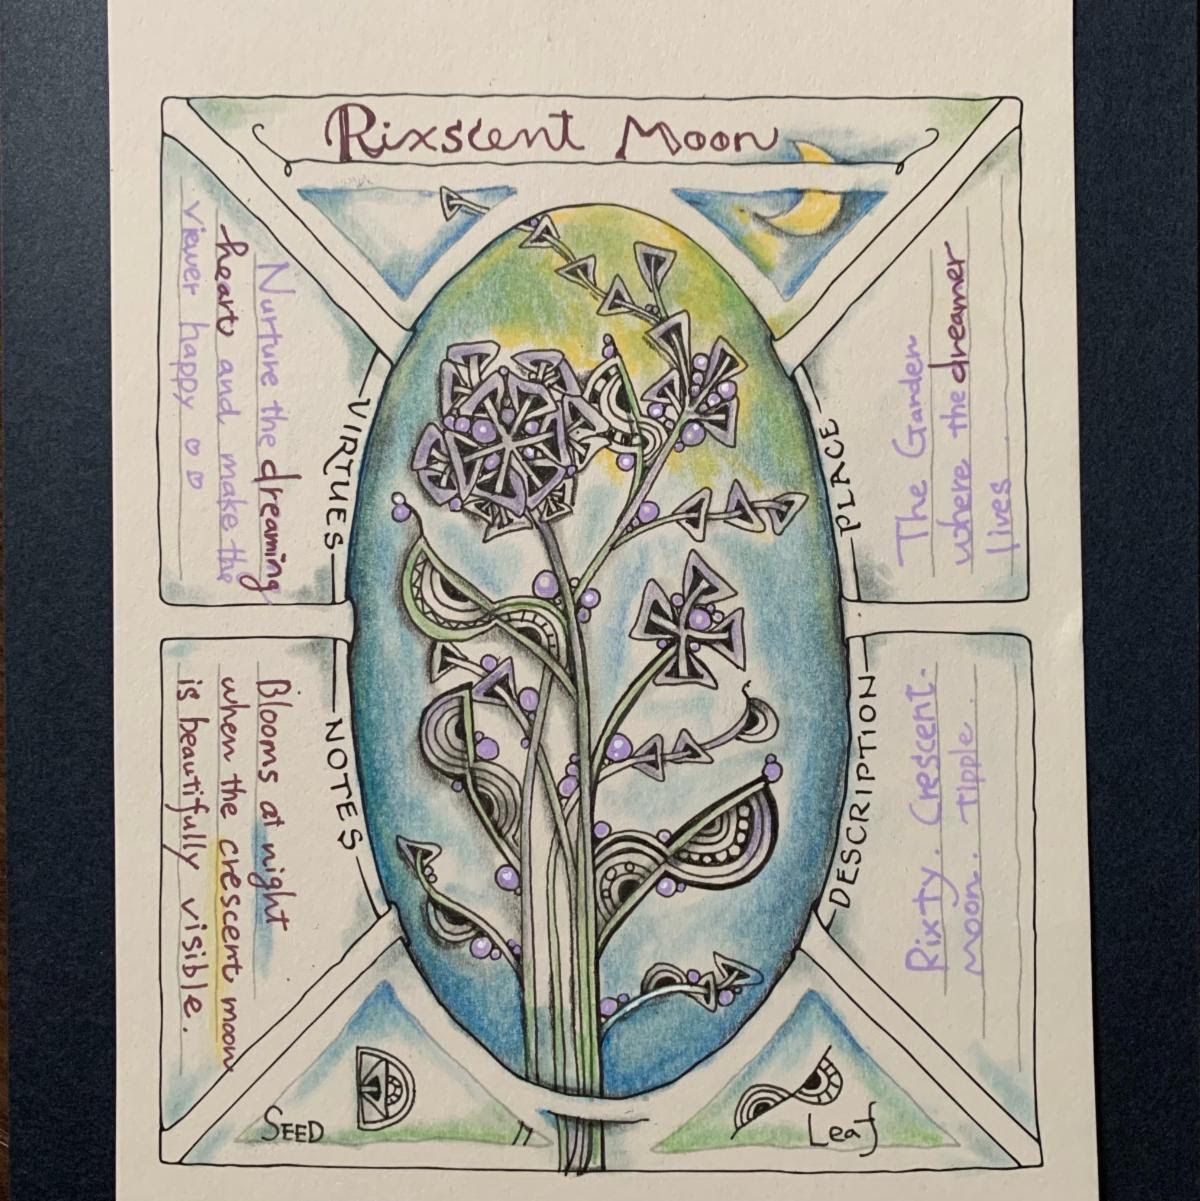 Rixscent Moon
VIRTUES
Nurture the dreaming
heart and make the
viewer happy ♡♡
PLACE
The Garden
where the dreamer
lives.
NOTES
Blooms at night
when the crescent moon
is beautifully visible.
DESCRIPTION
Rixty. Crescent-
Moon. Tipple.
SEED
Leaf